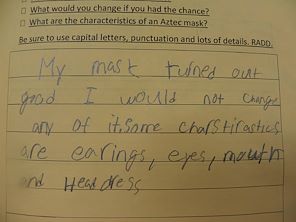 □ What would you change if you had the chance?
□ What are the characteristics of an Aztec mask?
Be sure to use capital letters, punctuation and lots of details. RADD.
My mask turned out
good I would not change
any of it.Some charstirastics
are earings, eyes, mouth
and Headdress